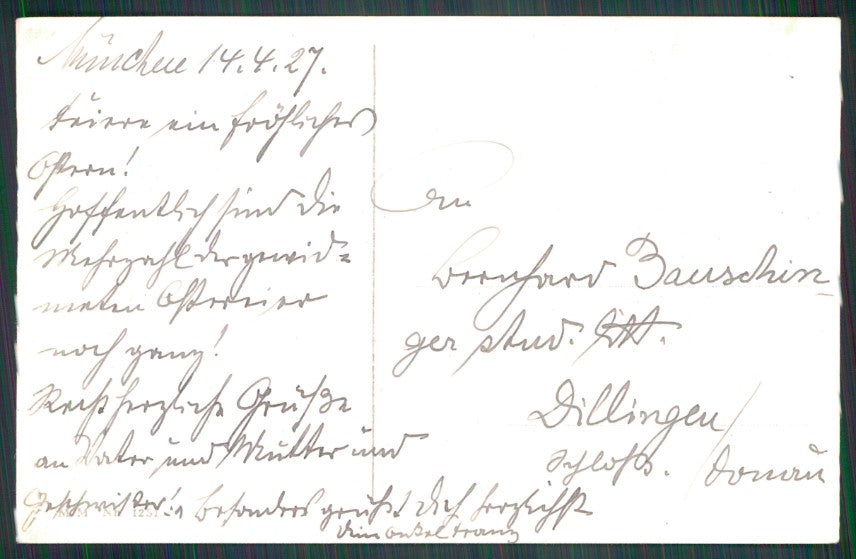 München 14.4.27.
Feiere ein fröhliches
Ostern!
Hoffentlich sind die
Mehrzahl der gewid=
meten Ostereier
noch ganz!
Recht herzliche Grüße
an Vater und Mutter und
Geschwister! besonders grüßt Dich herzlichst
Dein Onkel Franz
An
Bernhard Bauschin-
ger stud.
Dillingen/
Schloß. Donau